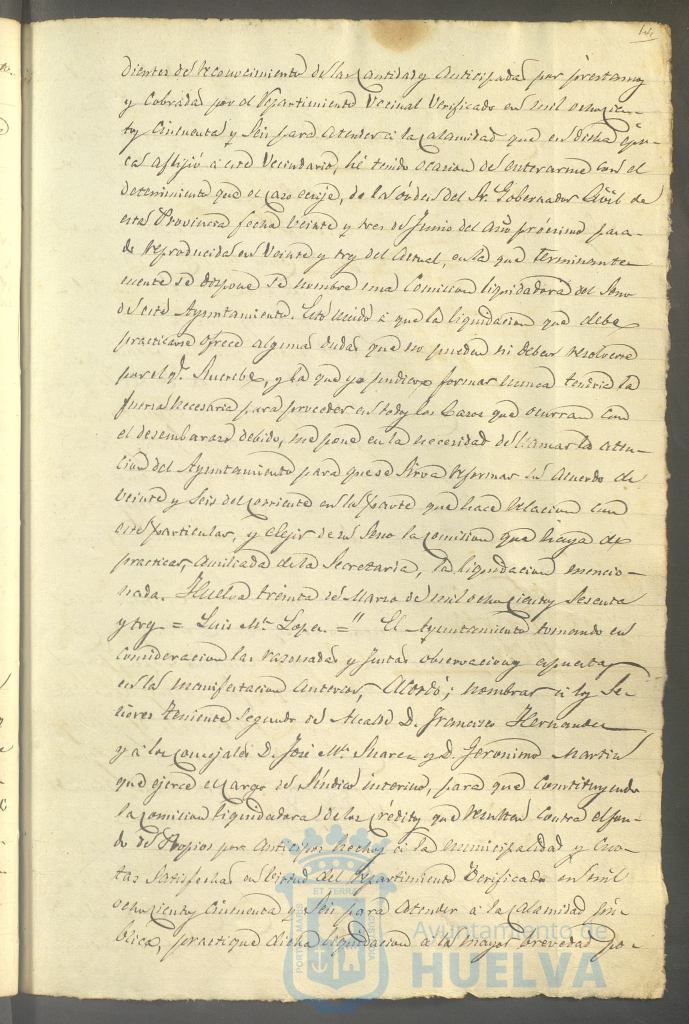 14
dientes del reconocimiento de las Cantidades Anticipadas por prestamos
y Cobradas por el Repartimiento Vecinal verificado en mil ochocien-
tos Cincuenta y Seis para atender a la Calamidad que en dicha épo-
ca aflijió a este Vecindario, hé tenido ocasion de enterarme con el
detenimiento que el caso exije, de la órden del Sr. Gobernador Civil de
esta Provincia fecha veinte y tres de Junio del año próximo pasa-
do reproducida en veinte y tres del actual, en la que terminante
mente se dispone se nombre una Comision liquidadora del Seno
de este Ayuntamiento. Esto unido a que la liquidacion que debe
practicarse ofrece algunas dudas que no pueden ni deben resolverse
por el q.e Suscribe, y la que yo pudiera formar nunca tendria la
fuerza necesaria para proceder en todos los Casos que ocurran con
el desembarazo debido, me pone en la necesidad de llamar la aten-
cion del Ayuntamiento para que se Sirva reformar su Acuerdo de
veinte y Seis del corriente en la parte que hace relacion con
este particular, y elejir de su Seno la comision que haya de
practicar, auxiliada de la Secretaria, la liquidacion mencio-
nada. Huelva treinta de Marzo de mil ochocientos Sesenta
y tres = Luis M.a Lopez = " El Ayuntamiento tomando en
Consideracion las razonadas y Justas observaciones espuestas
en la manifestacion anterior, Acordó; nombrar a los Se-
ñores Teniente Segundo de Alcalde D. Francisco Hernandez
y a los concejales D. José M.a Suarez y D. Jeronimo Martin
que ejerce el cargo de Síndico interino, para que Constituyendo
la comision liquidadora de los créditos que resulten contra el fon-
do de Propios por anticipos hechos a la municipalidad y Cuo-
tas Satisfechas en virtud del repartimiento Verificado en mil
ochocientos Cincuenta y Seis para atender a la Calamidad pú-
blica, practique dicha liquidacion a la mayor brevedad po-
ET TERRAE
Ayuntamiento de
HUELVA